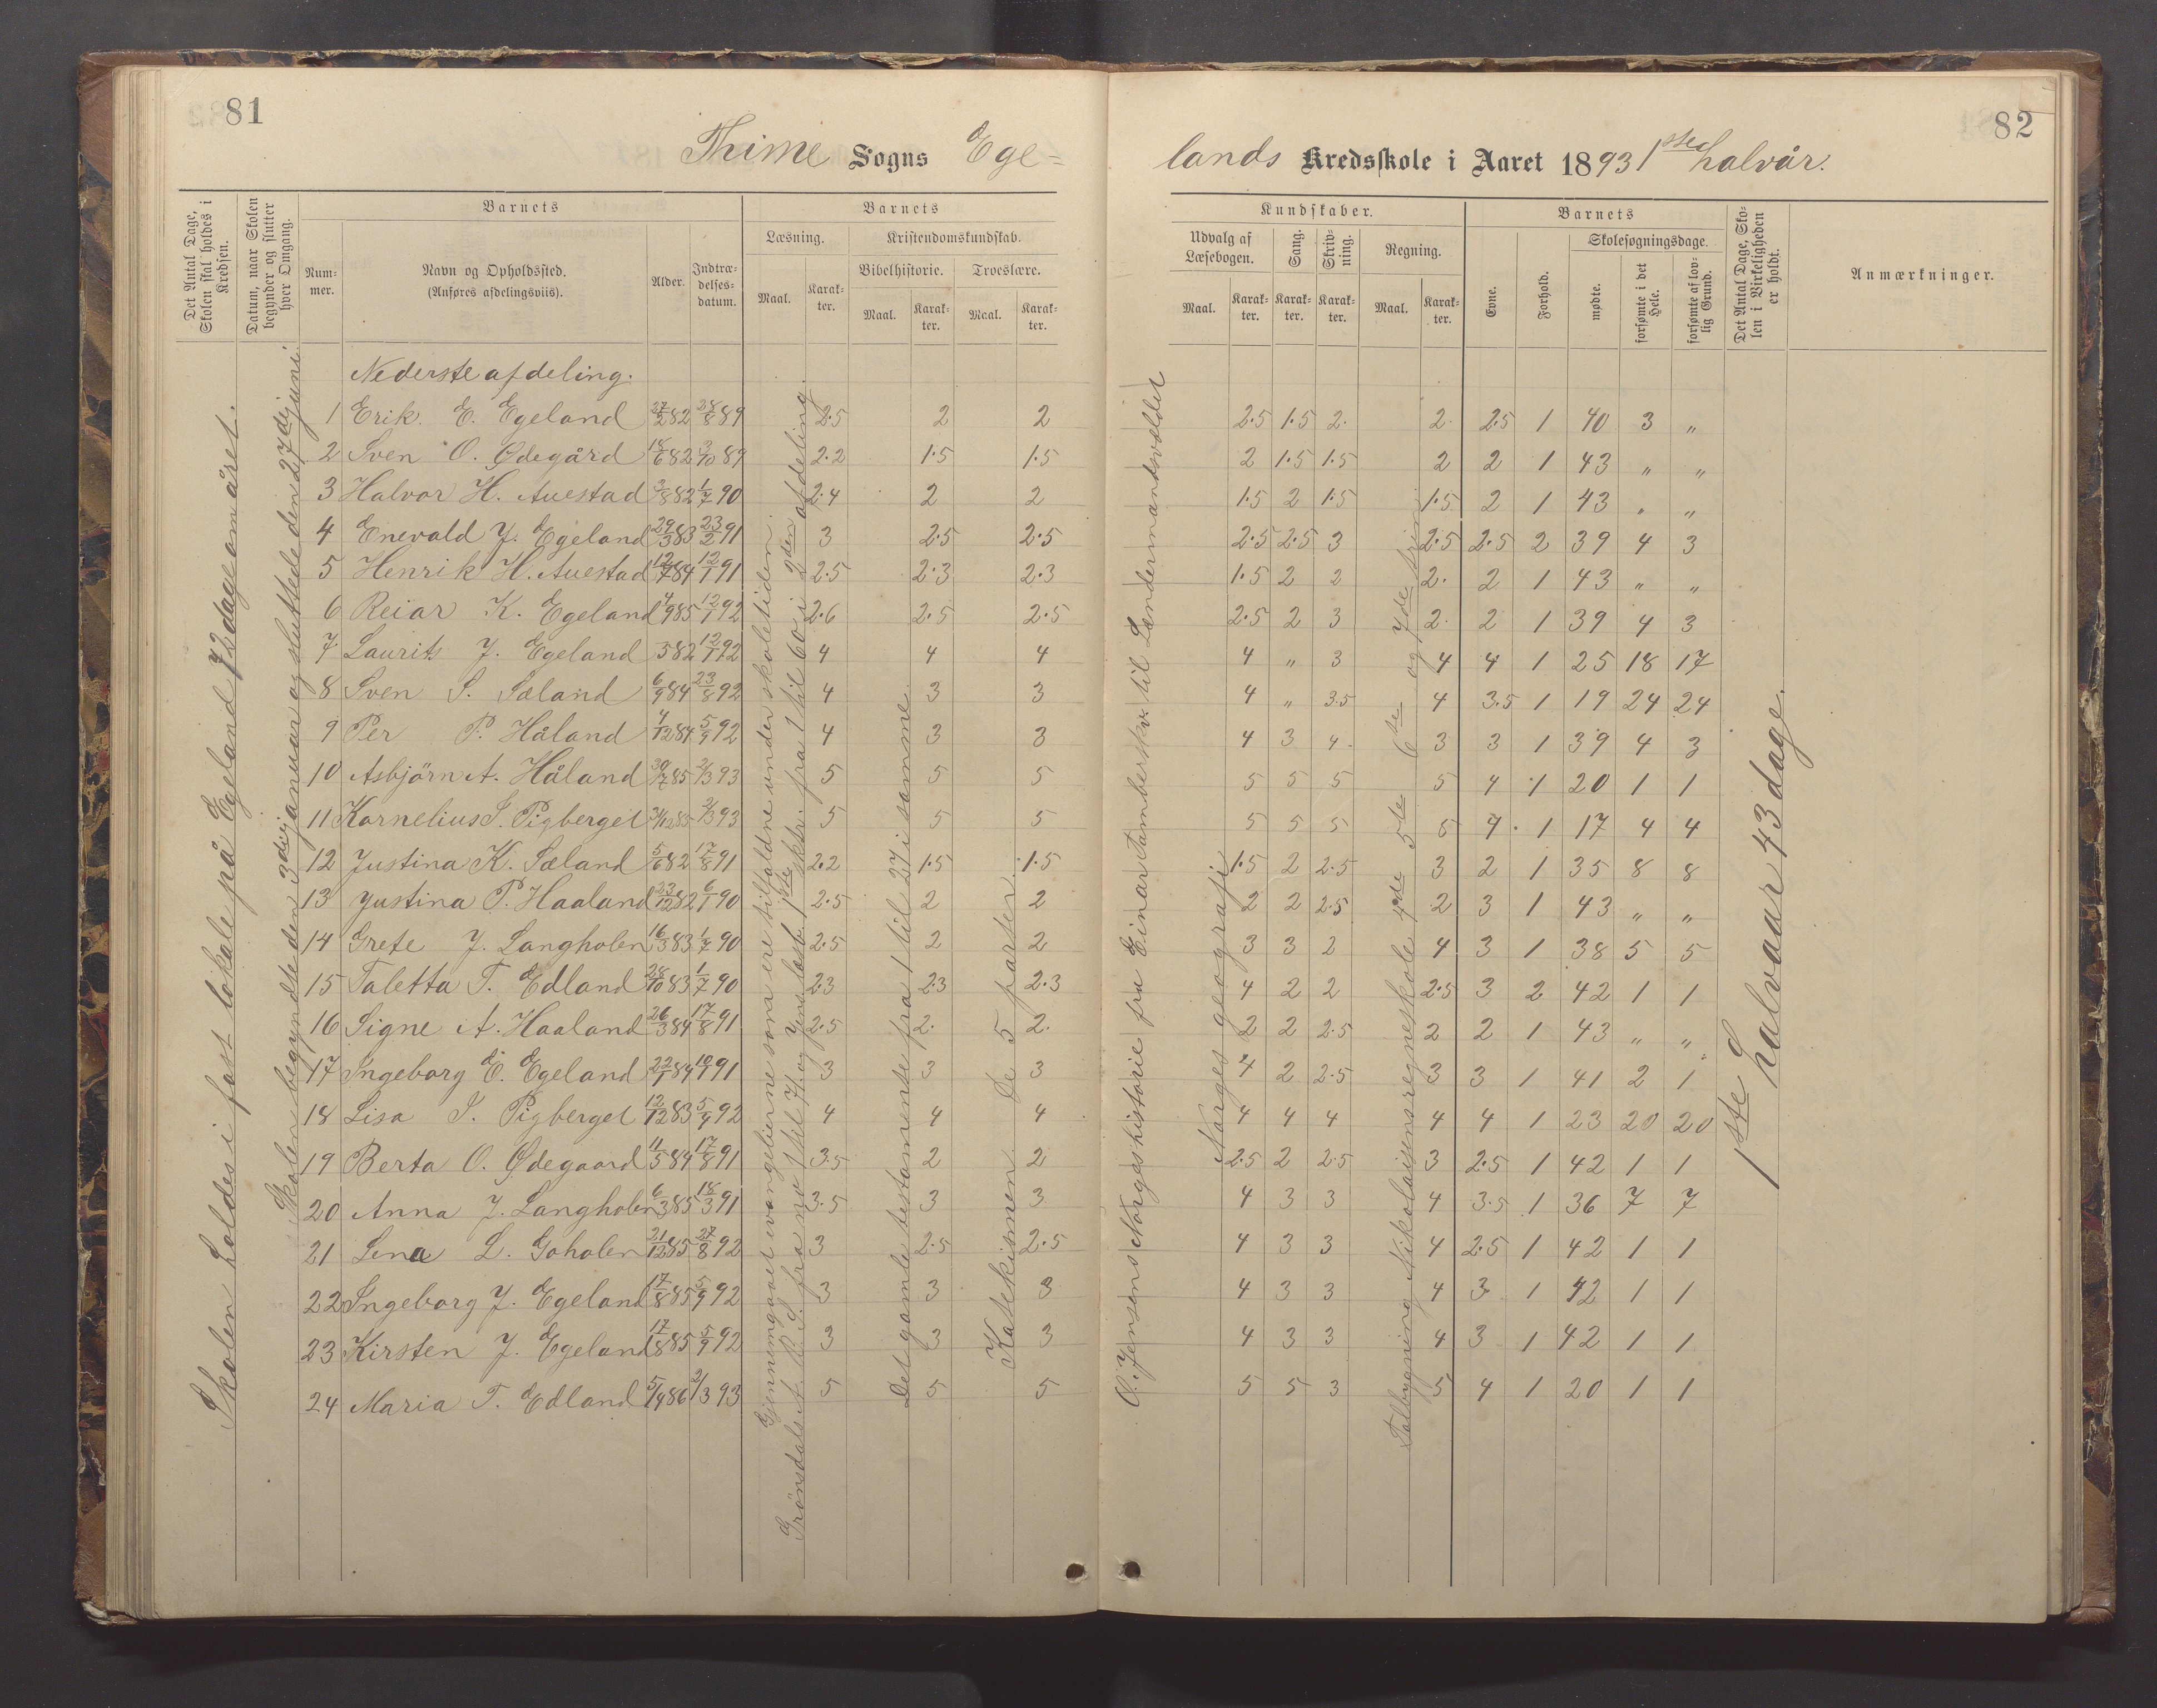 81
82
Thime Sogns Ege=
lands Kredsskole i Aaret 1893 1sted halvår.
Det Antal Dage, Skolen skal holdes i Kredsen.
Datum, naar Skolen begynder og slutter hver Omgang.
Barnets
Nummer.
Navn og Opholdssted.
(Anføres afdelingsviis).
Alder.
Indtrædelsesdatum.
Barnets
Læsning.
Maal.
Karakter.
Kristendomskundskab.
Bibelhistorie.
Maal.
Karakter.
Troeslære.
Maal.
Karakter.
Kundskaber.
Udvalg af Læsebogen.
Maal.
Karakter.
Sang.
Karakter.
Skrivning.
Karakter.
Regning.
Maal.
Karakter.
Barnets
Evne.
Forhold.
Skolesøgningsdage.
mødte.
forsømte i det Hele.
forsømte af lovlig Grund.
Det Antal Dage, Skolen i Virkeligheden er holdt.
Anmærkninger.
Skolen holdes i fast lokale på Egeland 72 dage om året.
Skolen begyndte den 3die januar og sluttede den 27de juni
Gjennemgaaet evangelierne som ere tilfaldne under skoletiden.
Det gamle testamente fra 1 til 27 i samme.
Katekismen. De 5 parter.
O. Jensens Norgeshistorie fra Einar Tamberskv. til Lendermandsvældet
Norges geografi
Talbygning Nikolaisens regneskole 4de 5te 6te og 7de trin
1ste halvaar 43 dage.
Nederste afdeling.
1 Erik E. Egeland 27/2 82 28/8 89 2.5 2 2 2.5 1.5 2. 2. 2.5 1 40 3 „
2 Sven O. Ødegård 18/6 82 3/10 89 2.2 1.5 1.5 2 1.5 1.5 2 2 1 43 „ „
3 Halvor H. Auestad 3/8 82 1/7 90 2.4 2 2 1.5 2 1.5 1.5 2 1 43 „ „
4 Enevald J. Egeland 29/3 83 23/2 91 3 2.5 2.5 2.5 2.5 3 2.5 2.5 2 39 4 3
5 Henrik H. Auestad 12/7 84 12/1 91 2.5 2.3 2.3 1.5 2 2 2. 2 1 43 „ „
6 Reiar K. Egeland 4/9 85 12/1 92 2.6 2.5 2.5 2.5 2 3 2. 2 1 39 4 3
7 Laurits J. Egeland 5 82 12/1 92 4 4 4 4 „ 3 4 4 1 25 18 17
8 Sven S. Sæland 6/9 84 23/8 92 4 3 3 4 „ 3.5 4 3.5 1 19 24 24
9 Per P. Håland 4/12 84 5/9 92 4 3 3 4 3 4. 3 3 1 39 4 3
10 Asbjörn A. Håland 30/7 85 2/3 93 5 5 5 5 5 5 5 4 1 20 1 1
11 Kornelius S. Pigberget 31/12 85 2/3 93 5 5 5 5 5 5 5 4 1 17 4 4
12 Justina K. Sæland 5/6 82 17/8 91 2.2 1.5 1.5 1.5 2 2.5 3 2 1 35 8 8
13 Justina P. Haaland 23/12 82 6/1 90 2.5 2 2 2 2 2.5 2 3 1 43 „ „
14 Grete J. Langholen 16/3 83 1/7 90 2.5 2 2 3 3 2 4 3 1 38 5 5
15 Taletta T. Edland 28/10 83 1/7 90 2.3 2.3 2.3 4 2 2 2.5 3 2 42 1 1
16 Signe A. Haaland 26/3 84 17/8 91 2.5 2. 2. 2 2 2.5 2 2 1 43 „ „
17 Ingeborg E. Egeland 22/1 84 19/1 91 3 3 3 4 2 2.5 3 3 1 41 2 1
18 Lisa S. Pigberget 12/12 83 5/9 92 4 4 4 4 4 4 4 4 1 23 20 20
19 Berta O. Ødegaard 11/5 84 17/8 91 3.5 2 2 2.5 2 2.5 3 2.5 1 42 1 1
20 Anna J. Langholen 6/3 85 18/3 91 3.5 3 3 4 3 3 4 3.5 1 36 7 7
21 Lena L. Goholen 21/12 85 27/8 92 3 2.5 2.5 4 3 3 4 2.5 1 42 1 1
22 Ingeborg J. Egeland 17/8 85 5/9 92 3 3 3 4 3 3 4 3 1 42 1 1
23 Kirsten J. Egeland 17/8 85 5/9 92 3 3 3 4 3 3 4 3 1 42 1 1
24 Maria T. Edland 5/4 86 2/3 93 5 5 5 5 5 3 5 4 1 20 1 1